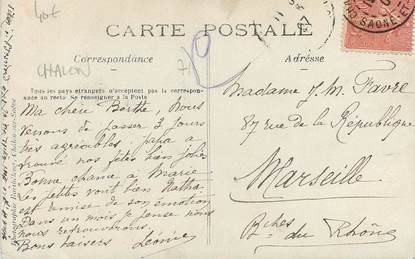 40€
CARTE POSTALE
CHALON
Correspondance
Adresse
SAONE-ET
Tous les pays étrangers n'acceptent pas la correspondance
au recto. Se renseigner à la Poste
Ma chère Berthe, Nous
venons de passer 3 jours
très agréables. papa a
trouvé nos fêtes bien jolies
Bonne chance à Marie.
Les petits vont bien
est remise de son émotion
Dans un mois je pense nous
nous retrouverons.
Bons baisers Léonie
Madame J. M. Favre
87 rue de la République
Marseille
Bches du Rhône